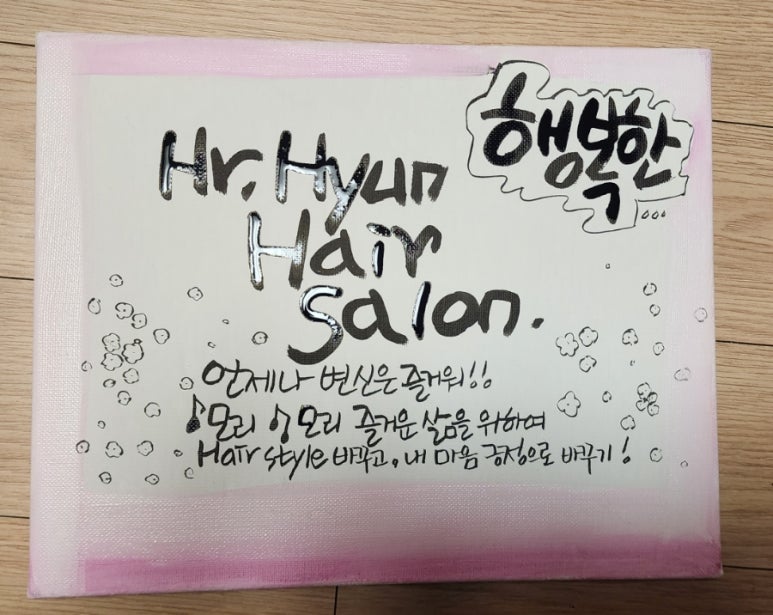 행복한...
Hr. Hyun
Hair
Salon.
언제나 변신은 즐거워!!
♪모리 ♪모리 즐거운 삶을 위하여
Hair style 바꾸고, 내 마음 긍정으로 바꾸기!